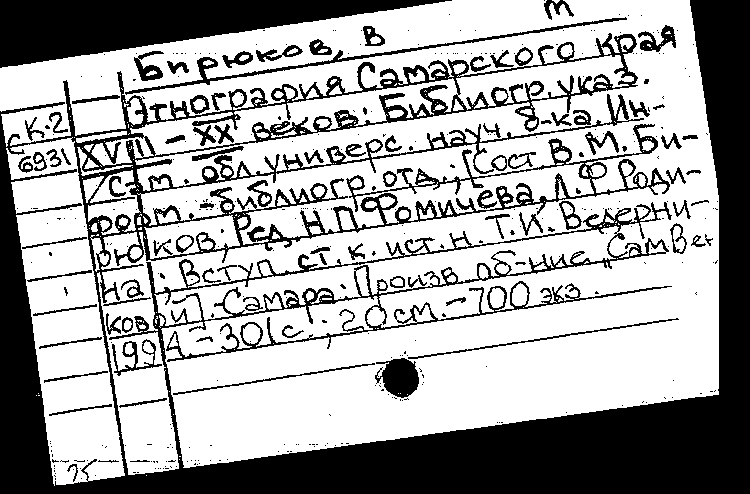 т
Бирюков, В
Этнография Самарского края
СК-2
XVIII – XX веков: Библиогр. указ.
6931
/Сам. обл. универс. науч. б-ка. Ин-
форм.-библиогр. отд.; [Сост. В.М. Би-
рюков; Ред. Н.П. Фомичёва, Л.Ф. Роди-
на; Вступ. ст. к. ист. н. Т.И. Ведерни-
ковой]. - Самара: Произв. об-ние „СамВен
1994. - 301с.; 20см. - 700 экз.
25